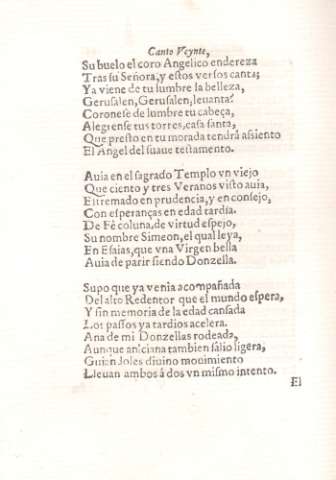 Canto Veynte,
Su buelo el coro Angelico endereza
Tras su Señora, y estos versos canta;
Ya viene de tu lumbre la belleza,
Gerusalen, Gerusalen, leuanta:
Coronese de lumbre tu cabeça,
Alegrense tus torres, casa santa,
Que presto en tu morada tendrá assiento
El Angel del suaue testamento.
Auia en el sagrado Templo vn viejo
Que ciento y tres Veranos visto auia,
Estremado en prudencia, y en consejo,
Con esperanças en edad tardia.
De Fè coluna, de virtud espejo,
Su nombre Simeon, el qual leya,
En Esaias, que vna Virgen bella
Auia de parir siendo Donzella.
Supo que ya venia acompañada
Del alto Redentor que el mundo espera,
Y sin memoria de la edad cansada
Los passos ya tardios acelera.
Ana de mi Donzellas rodeada,
Aunque anciana tambien salio ligera,
Guian doles diuino mouimiento
Lleuan ambos á dos vn mismo intento.
El